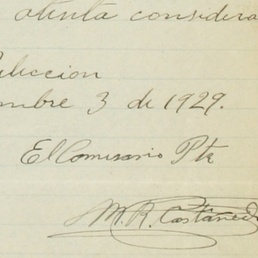 atenta considera
eleccion
mbre 3 de 1929.
El Comisario Pte
M. R. Castañeda